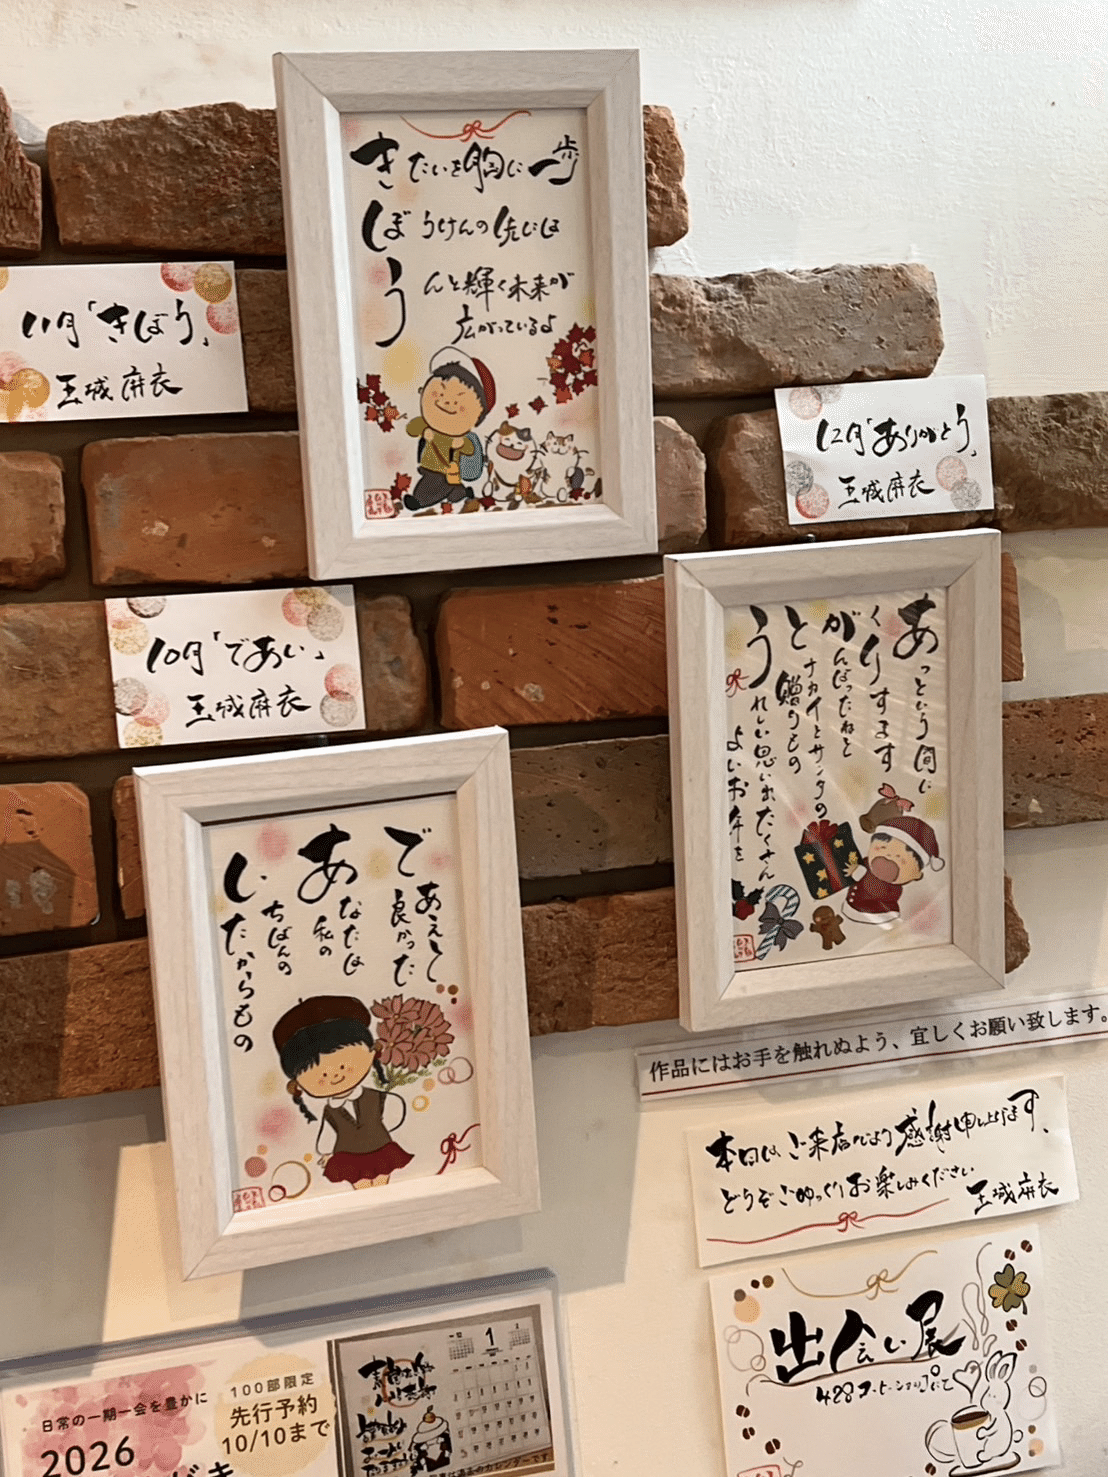 きたいを胸に一歩
ぼうけんの先には
うんと輝く未来が
広がっているよ
11月「きぼう」
玉城麻衣
12月「ありがとう」
玉城麻衣
10月「であい」
玉城麻衣
あっという間に
くりすます
がんばったねと
トナカイとサンタの
贈りもの
うれしい思い出たくさん
よいお年を
であえて
良かった
あなたは
私の
いちばんの
たからもの
作品にはお手を触れぬよう、宜しくお願い致します。
本日は、ご来店心より感謝申し上げます、
どうぞごゆっくりお楽しみください
玉城麻衣
出会い展
428コーヒーショップにて
日常の一期一会を豊かに
2026
100部限定
先行予約
10/10まで
1